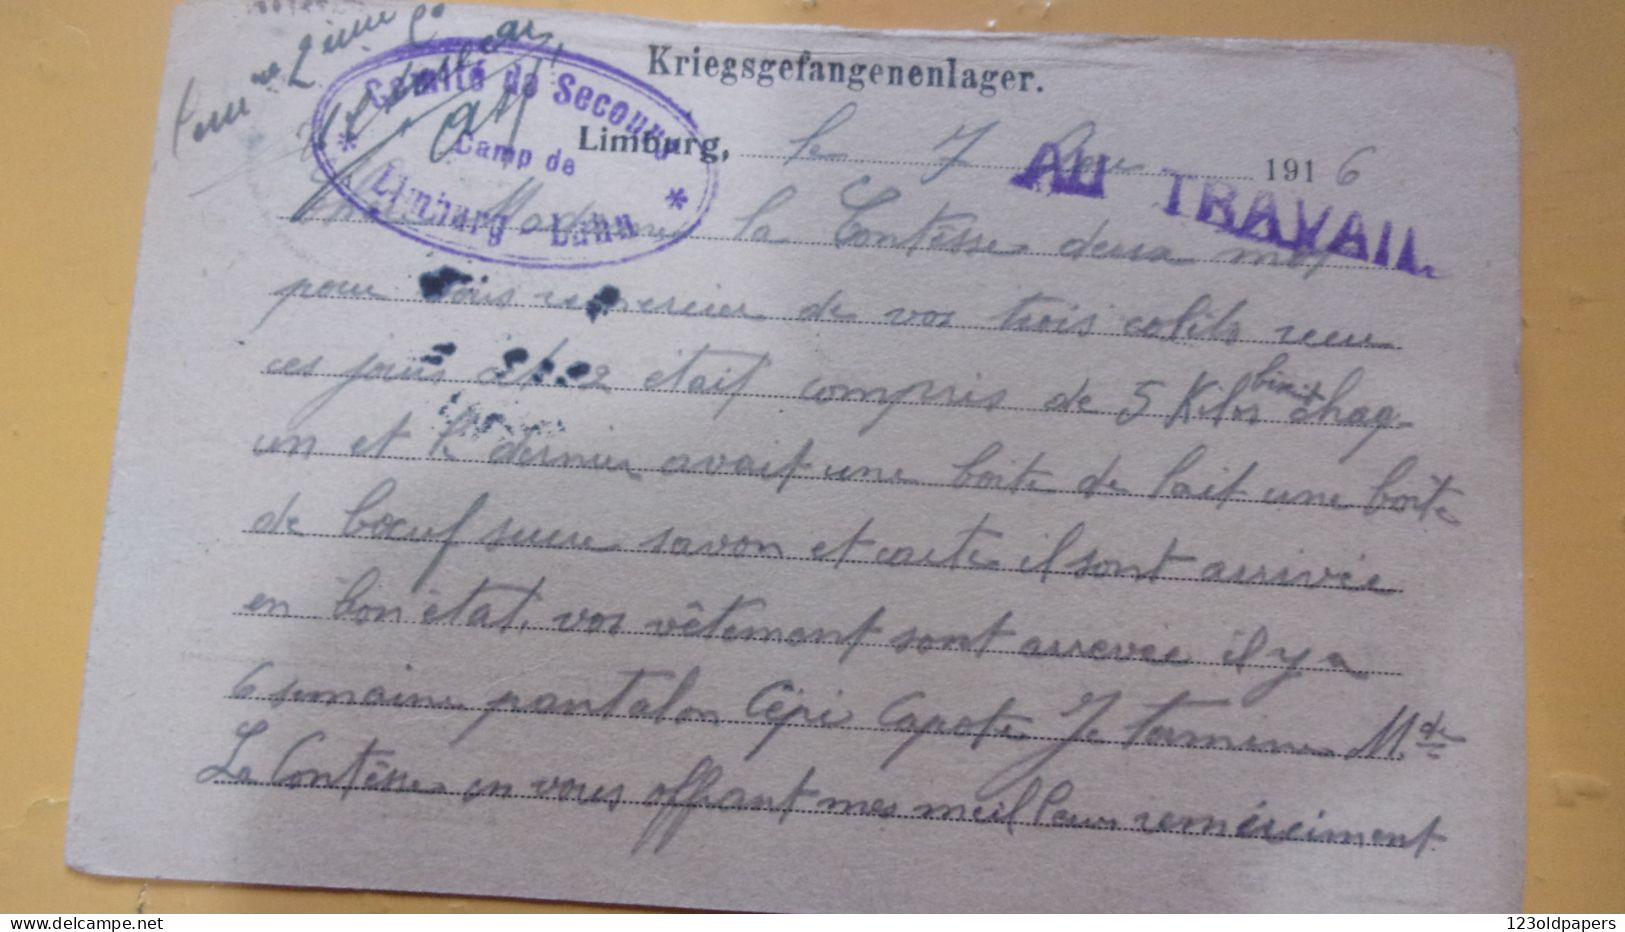 2ième
Comité de Secours
Camp de
Limburg - Lahn
Kriegsgefangenenlager.
Limburg, le 7 1916
AU TRAVAIL.
Madame la Contèsse deux mot
pour vous remercier de vos trois colits recu
ces jours était compris de 5 Kilos biscuit chaq-
un et le dernier avait une boite de lait une boîte
de bœuf sucre savon et carte il sont arrivée
en bon état, vos vêtement sont arrevée il y a
6 semaine pantalon Cépi Capote Je termine Mde
La Contèsse en vous offrant mes meilleur remerciment
123oldpapers